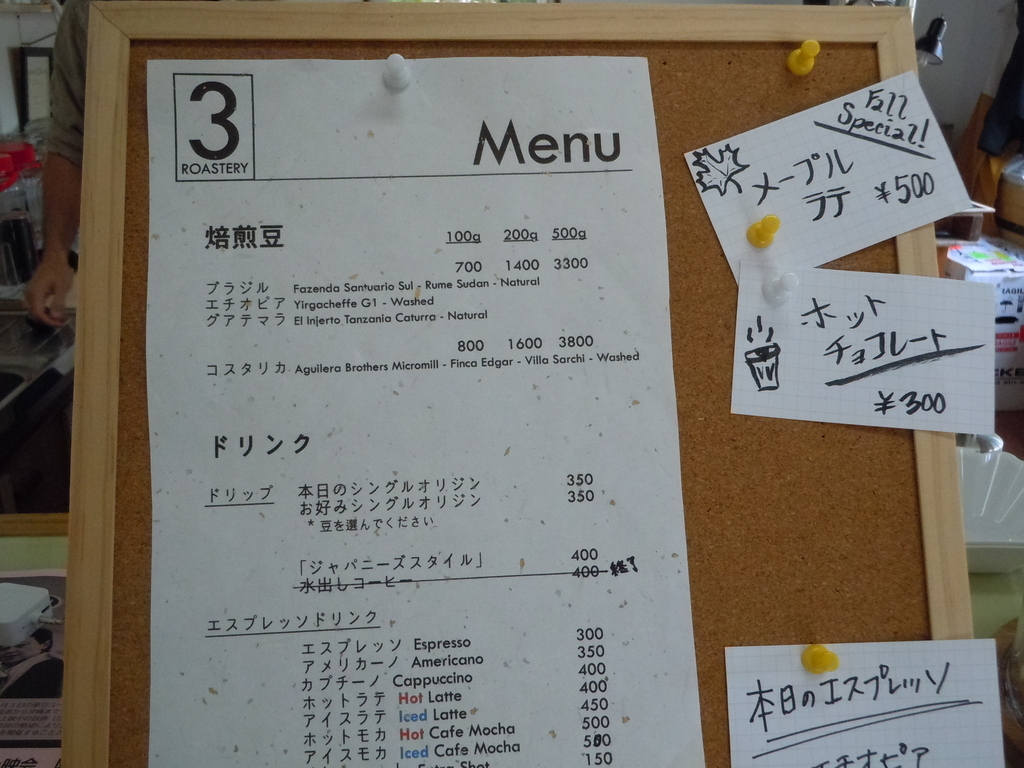 3
ROASTERY
Menu
焙煎豆 100g 200g 500g
700 1400 3300
ブラジル Fazenda Santuario Sul - Rume Sudan - Natural
エチオピア Yirgacheffe G1 - Washed
グアテマラ El Injerto Tanzania Caturra - Natural
800 1600 3800
コスタリカ Aguilera Brothers Micromill - Finca Edgar - Villa Sarchi - Washed
ドリンク
ドリップ 本日のシングルオリジン 350
お好みシングルオリジン 350
* 豆を選んでください
「ジャパニーズスタイル」 400
水出しコーヒー 400 終了
エスプレッソドリンク
エスプレッソ Espresso 300
アメリカーノ Americano 350
カプチーノ Cappuccino 400
ホットラテ Hot Latte 400
アイスラテ Iced Latte 450
ホットモカ Hot Cafe Mocha 500
アイスモカ Iced Cafe Mocha 500
Extra Shot 150
Fall
Special!
メープル
ラテ ¥500
ホット
チョコレート
¥300
本日のエスプレッソ
エチオピア